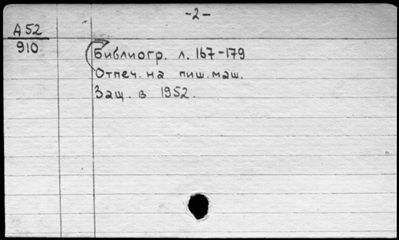 -2-
А52
910
(Библиогр. л. 167-179
Отпеч. на пиш. маш.
Защ. в 1952.